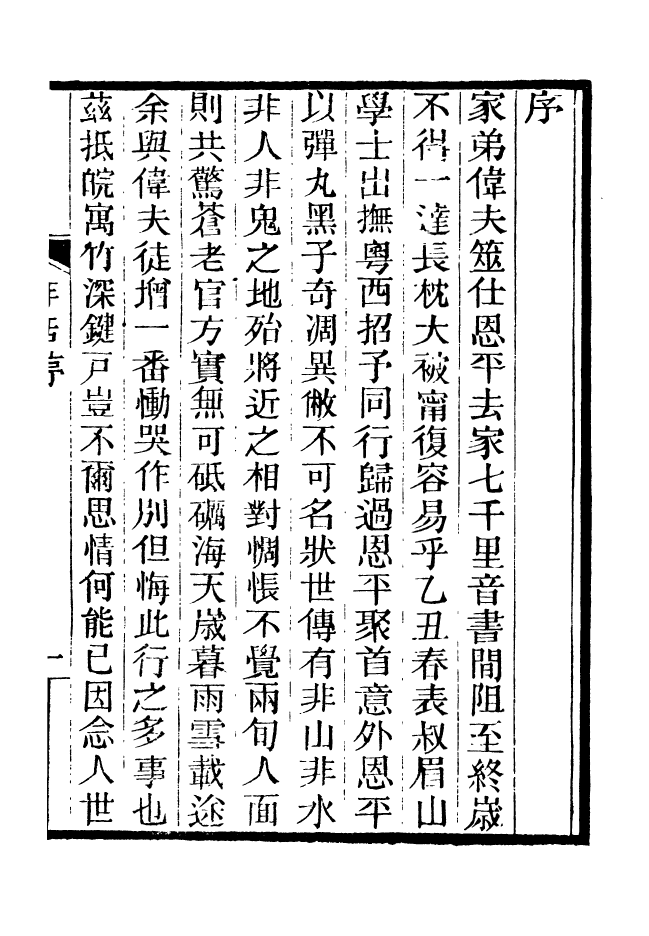 序
家弟偉夫筮仕恩平去家七千里音書間阻至終歲
不得一達長枕大被甯復容易乎乙丑春表叔眉山
學士出撫粵西招予同行歸過恩平聚首意外恩平
以彈丸黑子奇凋異敝不可名狀世傳有非山非水
非人非鬼之地殆將近之相對惆悵不覺兩旬人面
則共驚蒼老官方實無可砥礪海天歲暮雨雪載途
余與偉夫徒增一番慟哭作別但悔此行之多事也
茲抵皖寓竹深鍵戸豈不爾思情何能已因念人世
序
一